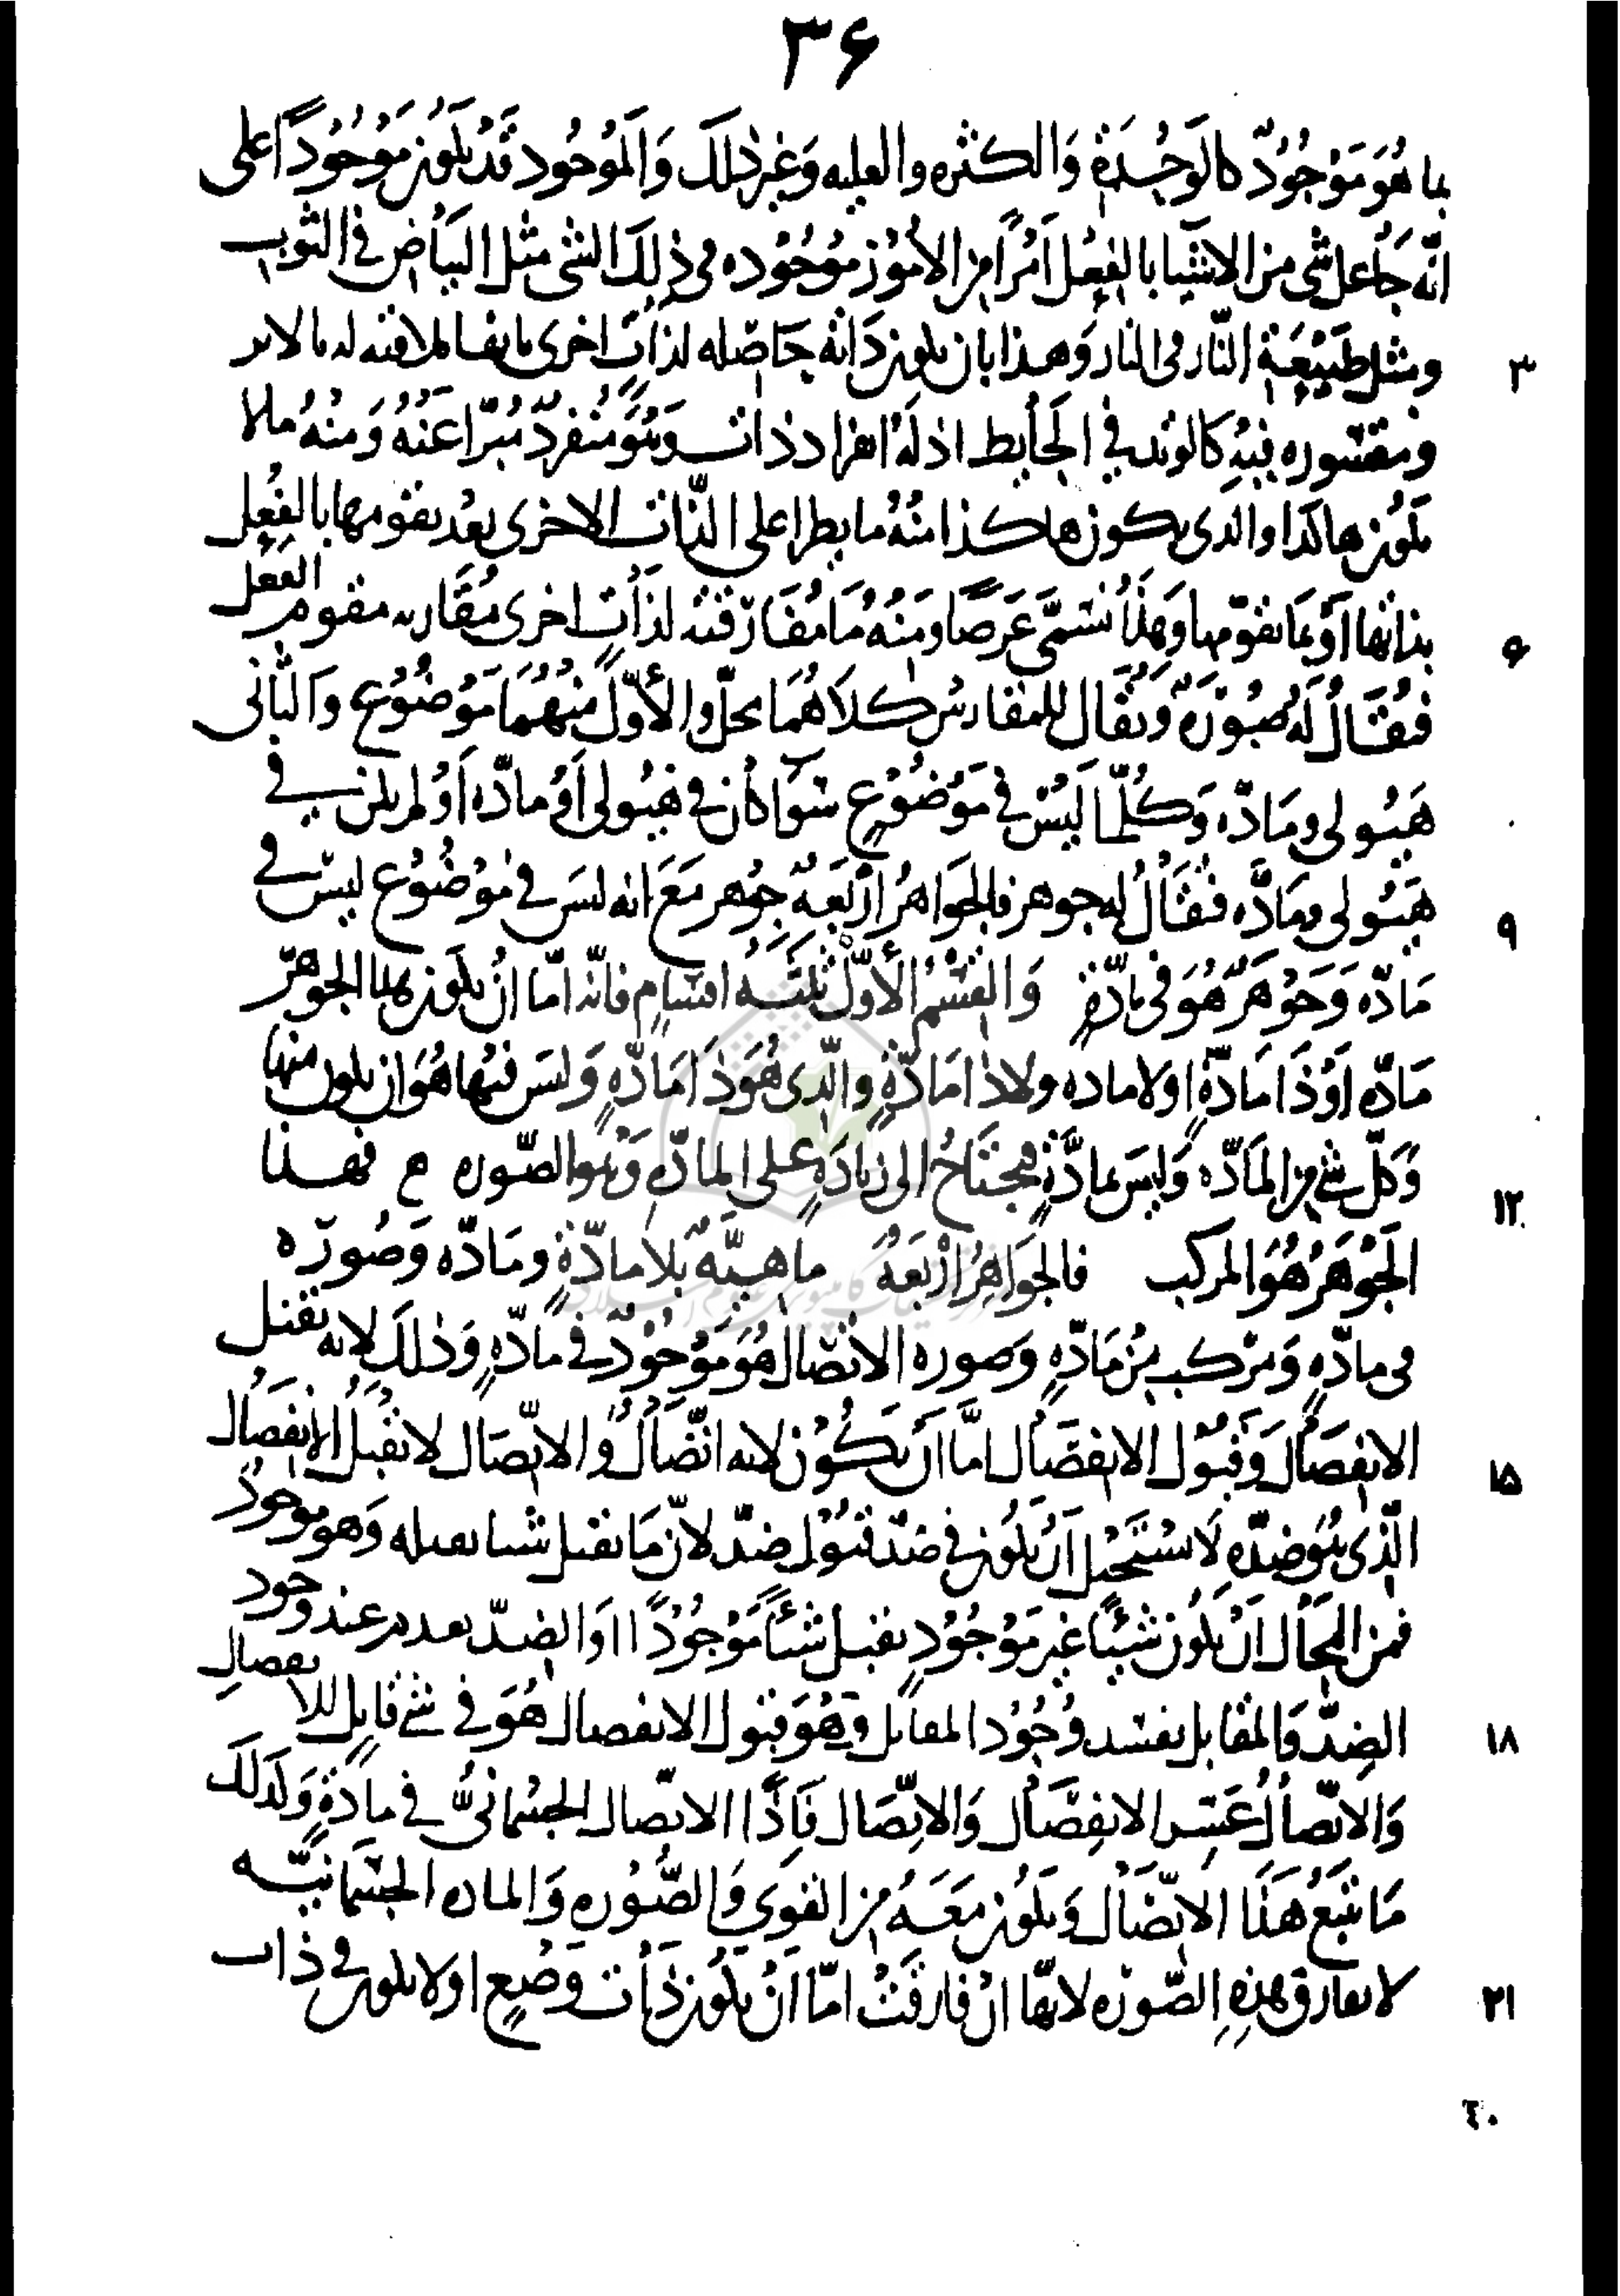 ۳۶
بما هُوَ مَوْجُوُدٌ كالَوحْدَة وَالكثره والعليه وَغير ذلِكَ وَالَموُجُود قَدْ يَكوُن مَوُجُوُداً على
انّه جَاعل شى من الاشيا بالفِعْل اَمْراً مِن الاُموُر مَوُجُوُده فى ذلِكَ الشى مثل البَيَاض فى الثوب
ومثل طَبيْعَة النّار فى النار وَهذا بان يكون ذَاته حَاصله لذات اخرى بانها ملاقيه له بالاسر
۳
ومتقرره فيه كالوتد في الحَايط اذ لهُ انفراد ذات وَهُوَ مُنفردٌ مُبّراً عَنْهُ وَمِنْهُ مالا
يَكوُن هاكذا والذى يكون هاكذا مِنْهُ ما يطرا على الذّات الاخرى بعْد تقومها بالفِعْل
بذاتها اَوْ بمَا يقوّمها وَهذا يُسَمَّى عَرَضاً وَمِنْهُ مَا مُقَارَنَته لذات اخرى مُقَارنه مقوم الفعل
۶
فيُقَالُ لَهُ صُورَةٌ وَيُقَال للمقارنين كلاَهُمَا محلّ والاوّلُ مِنْهُمَا مَوْضُوُع وَالثّانى
هَيُولى ومَادّه وَكُلّمَا لَيْسَ فى مَوْضُوْعٍ سَوا كان في هَيُولى اَوْ مادّه اَوْ لم يكن فى
هَيُولى ومَادَّه فيُقَالُ له جوهر فالجَوَاهِرُ اَرْبَعَهٌ جَوْهر مَعَ انه ليسَ في مَوْضُوُع ليسَ فى
۹
مَادّه وَجَوْهَرٌ هُوَ فى مادّةٍ وَالقِسْمُ الاَوّلُ ثلثَه اقسامٍ فانّه امّا انْ يكوُن هذا الجوهرُ
مَادّه اَوْذَا مَادّةٍ اولا ماده ولاذا مَادّةٍ والّذى هُوَ ذَا مَادّهٍ وَليسَ فيها هُوَ ان يكون منها
وَكلّ شئٍ من المَادّه وَليسَ بمادّةٍ يحتَاجُ الى زيَادَةٍ على المادّه وَهُوَ الصّوره ح فهذا
۱۲
الجَوْهَرُ هُوَ المركب فالجوَاهِرُ اَرْبَعَهٌ ماهيّهٌ بلا مادّةٍ ومَادّه وَصُورَه
فى مادّهٍ وَمركب مِنْ مَادّهٍ وَصوره الاتصّال هُوَ مَوْجُوُدٌ فى مادّهٍ وَذلكَ لانه يقبل
الانفصَالَ وَقبُول الانفصَال امَّا اَنْ يَكُوْن لانه اتّصَالٌ وَالاتّصَال لا يقبل الانفصَال
۱۵
الّذى هُوَ ضدّه لاَ يسْتَحيْل اَنْ يكوُن في ضدّ قبُوْل ضدّ لانّ مَا يقبل شيا يقبله وَهو موجود
فمن المحَال اَنْ يكوُن شيئاً غير مَوْجُوُدٍ يقبل شيئاً مَوْجُوْداً اَوَ الضدّ يعدم عند وجود
الضدّ وَالمقابل يفسد وجُوْد المقابل وَهُوَ قبول الانفصال هُوَ فى شئ قابل للانفصال
۱۸
وَالاتّصالُ الانفِصَالَ وَالاتِّصَال فَاِذَا الاتّصال الجسْمَانىُّ في مادّةٍ وَكذلك
مَا يَتْبَعُ هَذَا الاتّصَال وَيكوُن مَعَهُ مِن القوَى وَالصّوُره وَالماده الجسْمَانيّه
لا تفارق هذِهِ الصّوُرَه لانّها انْ فارقتْ امّا اَنْ يَكُوُن ذَات وَضعٍ اولا يكون فى ذات
۲۱
٤٠